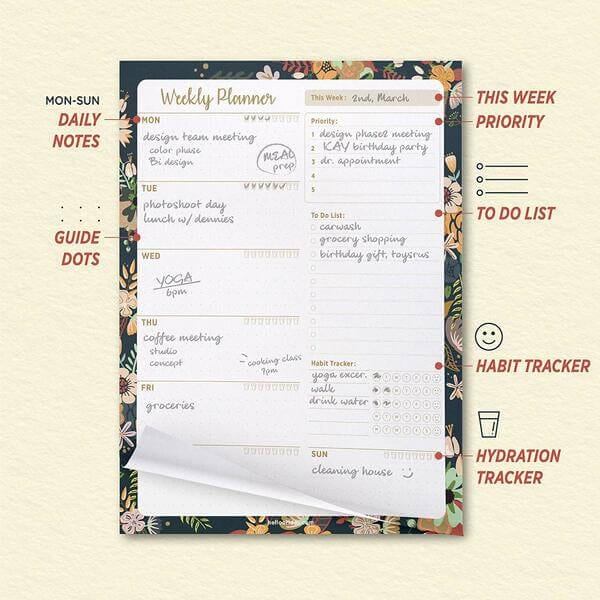 Weekly Planner
This Week : 2nd, March
MON-SUN
DAILY
NOTES
GUIDE
DOTS
THIS WEEK
PRIORITY
TO DO LIST
HABIT TRACKER
HYDRATION
TRACKER
MON
design team meeting
color phase
Bi design
MEAL
prep
TUE
photoshoot day
lunch w/ dennies
WED
YOGA
6pm
THU
coffee meeting
studio
concept
cooking class
7pm
FRI
groceries
Priority:
1 design phase2 meeting
2 KAY birthday party
3 dr. appointment
4
5
To Do List:
carwash
grocery shopping
birthday gift, toysrus
Habit Tracker:
yoga excer.
walk
drink water
SUN
cleaning house